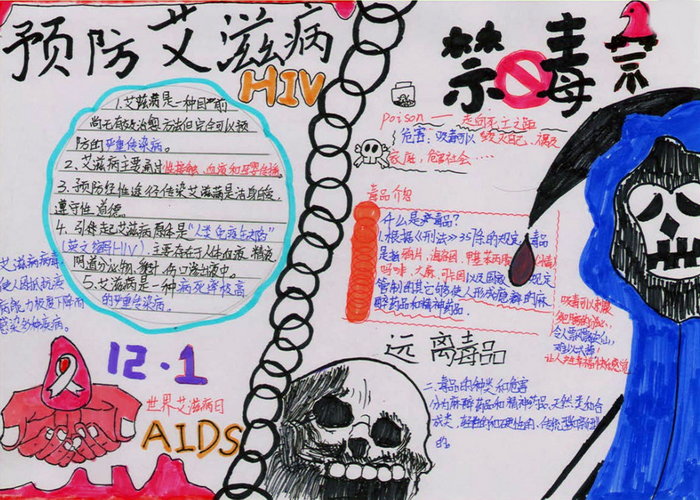 预防艾滋病
HIV
1.艾滋病是一种目前
尚无有效治愈方法但完全可以预
防的严重传染病。
2.艾滋病主要通过性接触、血液和母婴传播。
3.预防经性途径传染艾滋病是洁身自爱、
遵守性道德。
4.引起艾滋病原体是"人类免疫缺陷病"
(英文缩写HIV)主要存在于人体血液、精液
阴道分泌物、乳汁、伤口渗出液中。
5.艾滋病是一种病死率极高
的严重传染病。
艾滋病病毒
使人因抵抗疾
病能力极度下降而
感染多种疾病。
12.1
世界艾滋病日
AIDS
禁毒
poison — 走向死亡之路
危害:吸毒可以毁灭自己、祸及
家庭,危害社会……
毒品介绍
什么是毒品?
1.根据《刑法》357条的规定,毒品
是指鸦片、海洛因、甲基苯丙胺(冰毒)
吗啡、大麻、可卡因以及国家规定
管制的其它能够使人形成瘾癖的麻
醉药品和精神药品。
远离毒品
二.毒品的种类和危害
分为麻醉药品和精神药品,天然类和合
的。
让人对幸福快乐感觉